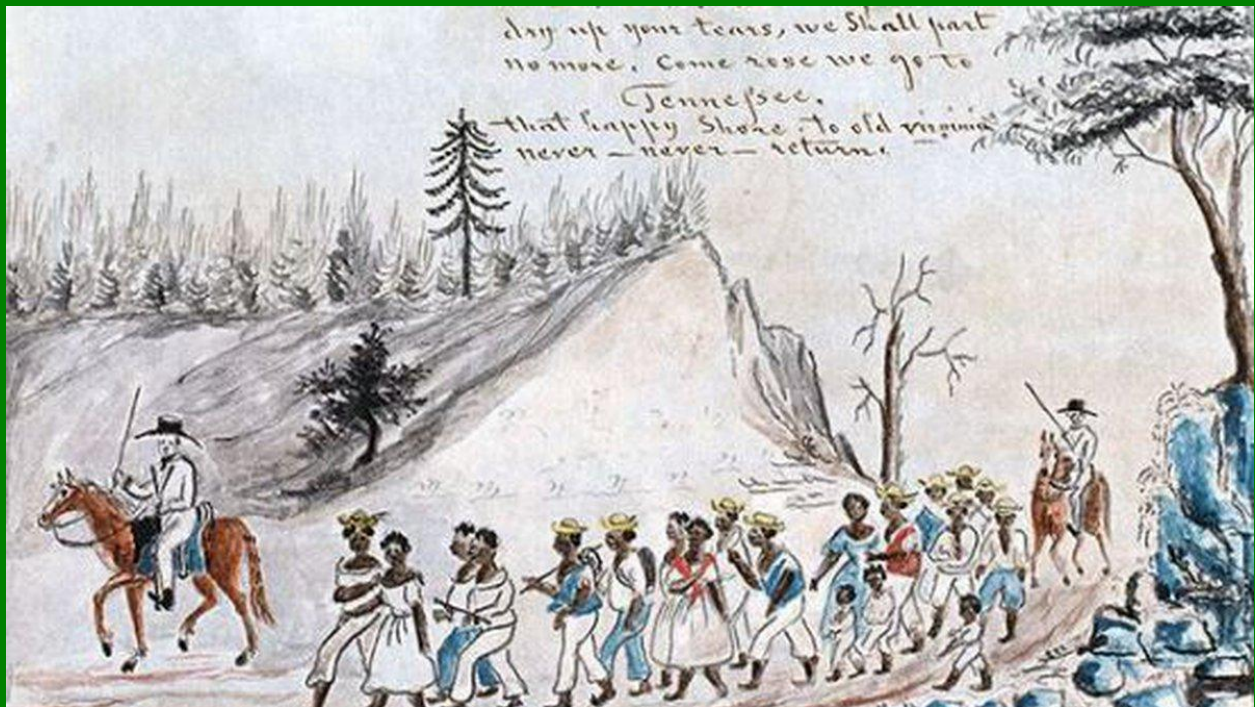 dry up your tears, we Shall part
no more. Come rose we go to
Tenneſsee.
that happy Shore. to old virginia
never – never – return.